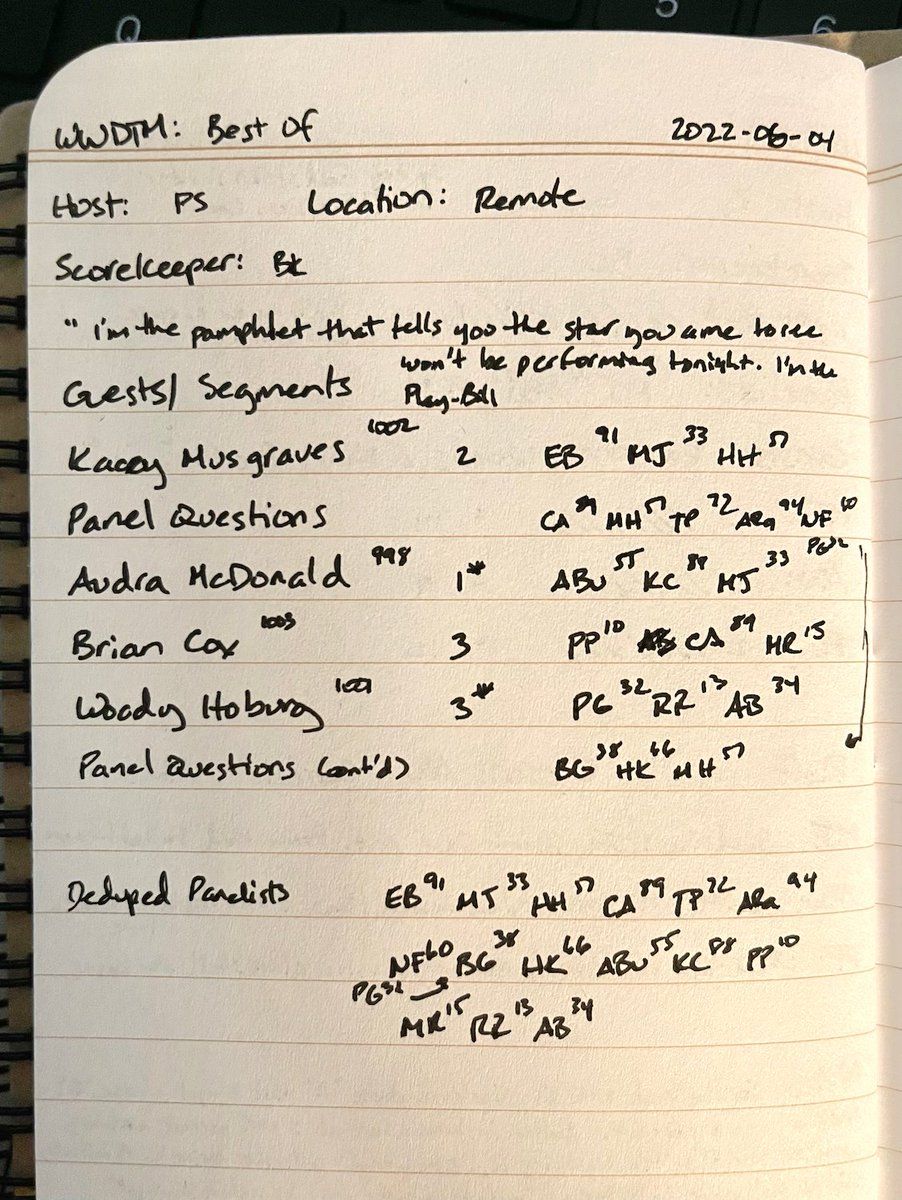 Q 5 6
WWDTM: Best Of 2022-06-04
Host: PS Location: Remote
Scorekeeper: BK
"I'm the pamphlet that tells you the star you came to see
won't be performing tonight. I'm the
Guests/ Segments Play-Bill
Kacey Musgraves 1002 2 EB 91 MJ 33 HH 57
Panel Questions CA 89 MH 57 TP 72 ARa 94 NF 60
PG 32
Audra McDonald 998 1* ABu 55 KC 88 MJ 33
Brian Cox 1003 3 PP 10 CA 89 MR 15
Woody Hoburg 1001 3* PG 32 RR 13 AB 34
Panel Questions (cont'd) BG 38 HK 66 MH 57
Deduped Panelists EB 91 MJ 33 HH 57 CA 89 TP 72 ARa 94
NF 60 BG 38 HK 66 ABu 55 KC 88 PP 10
PG 32
MR 15 RR 13 AB 34